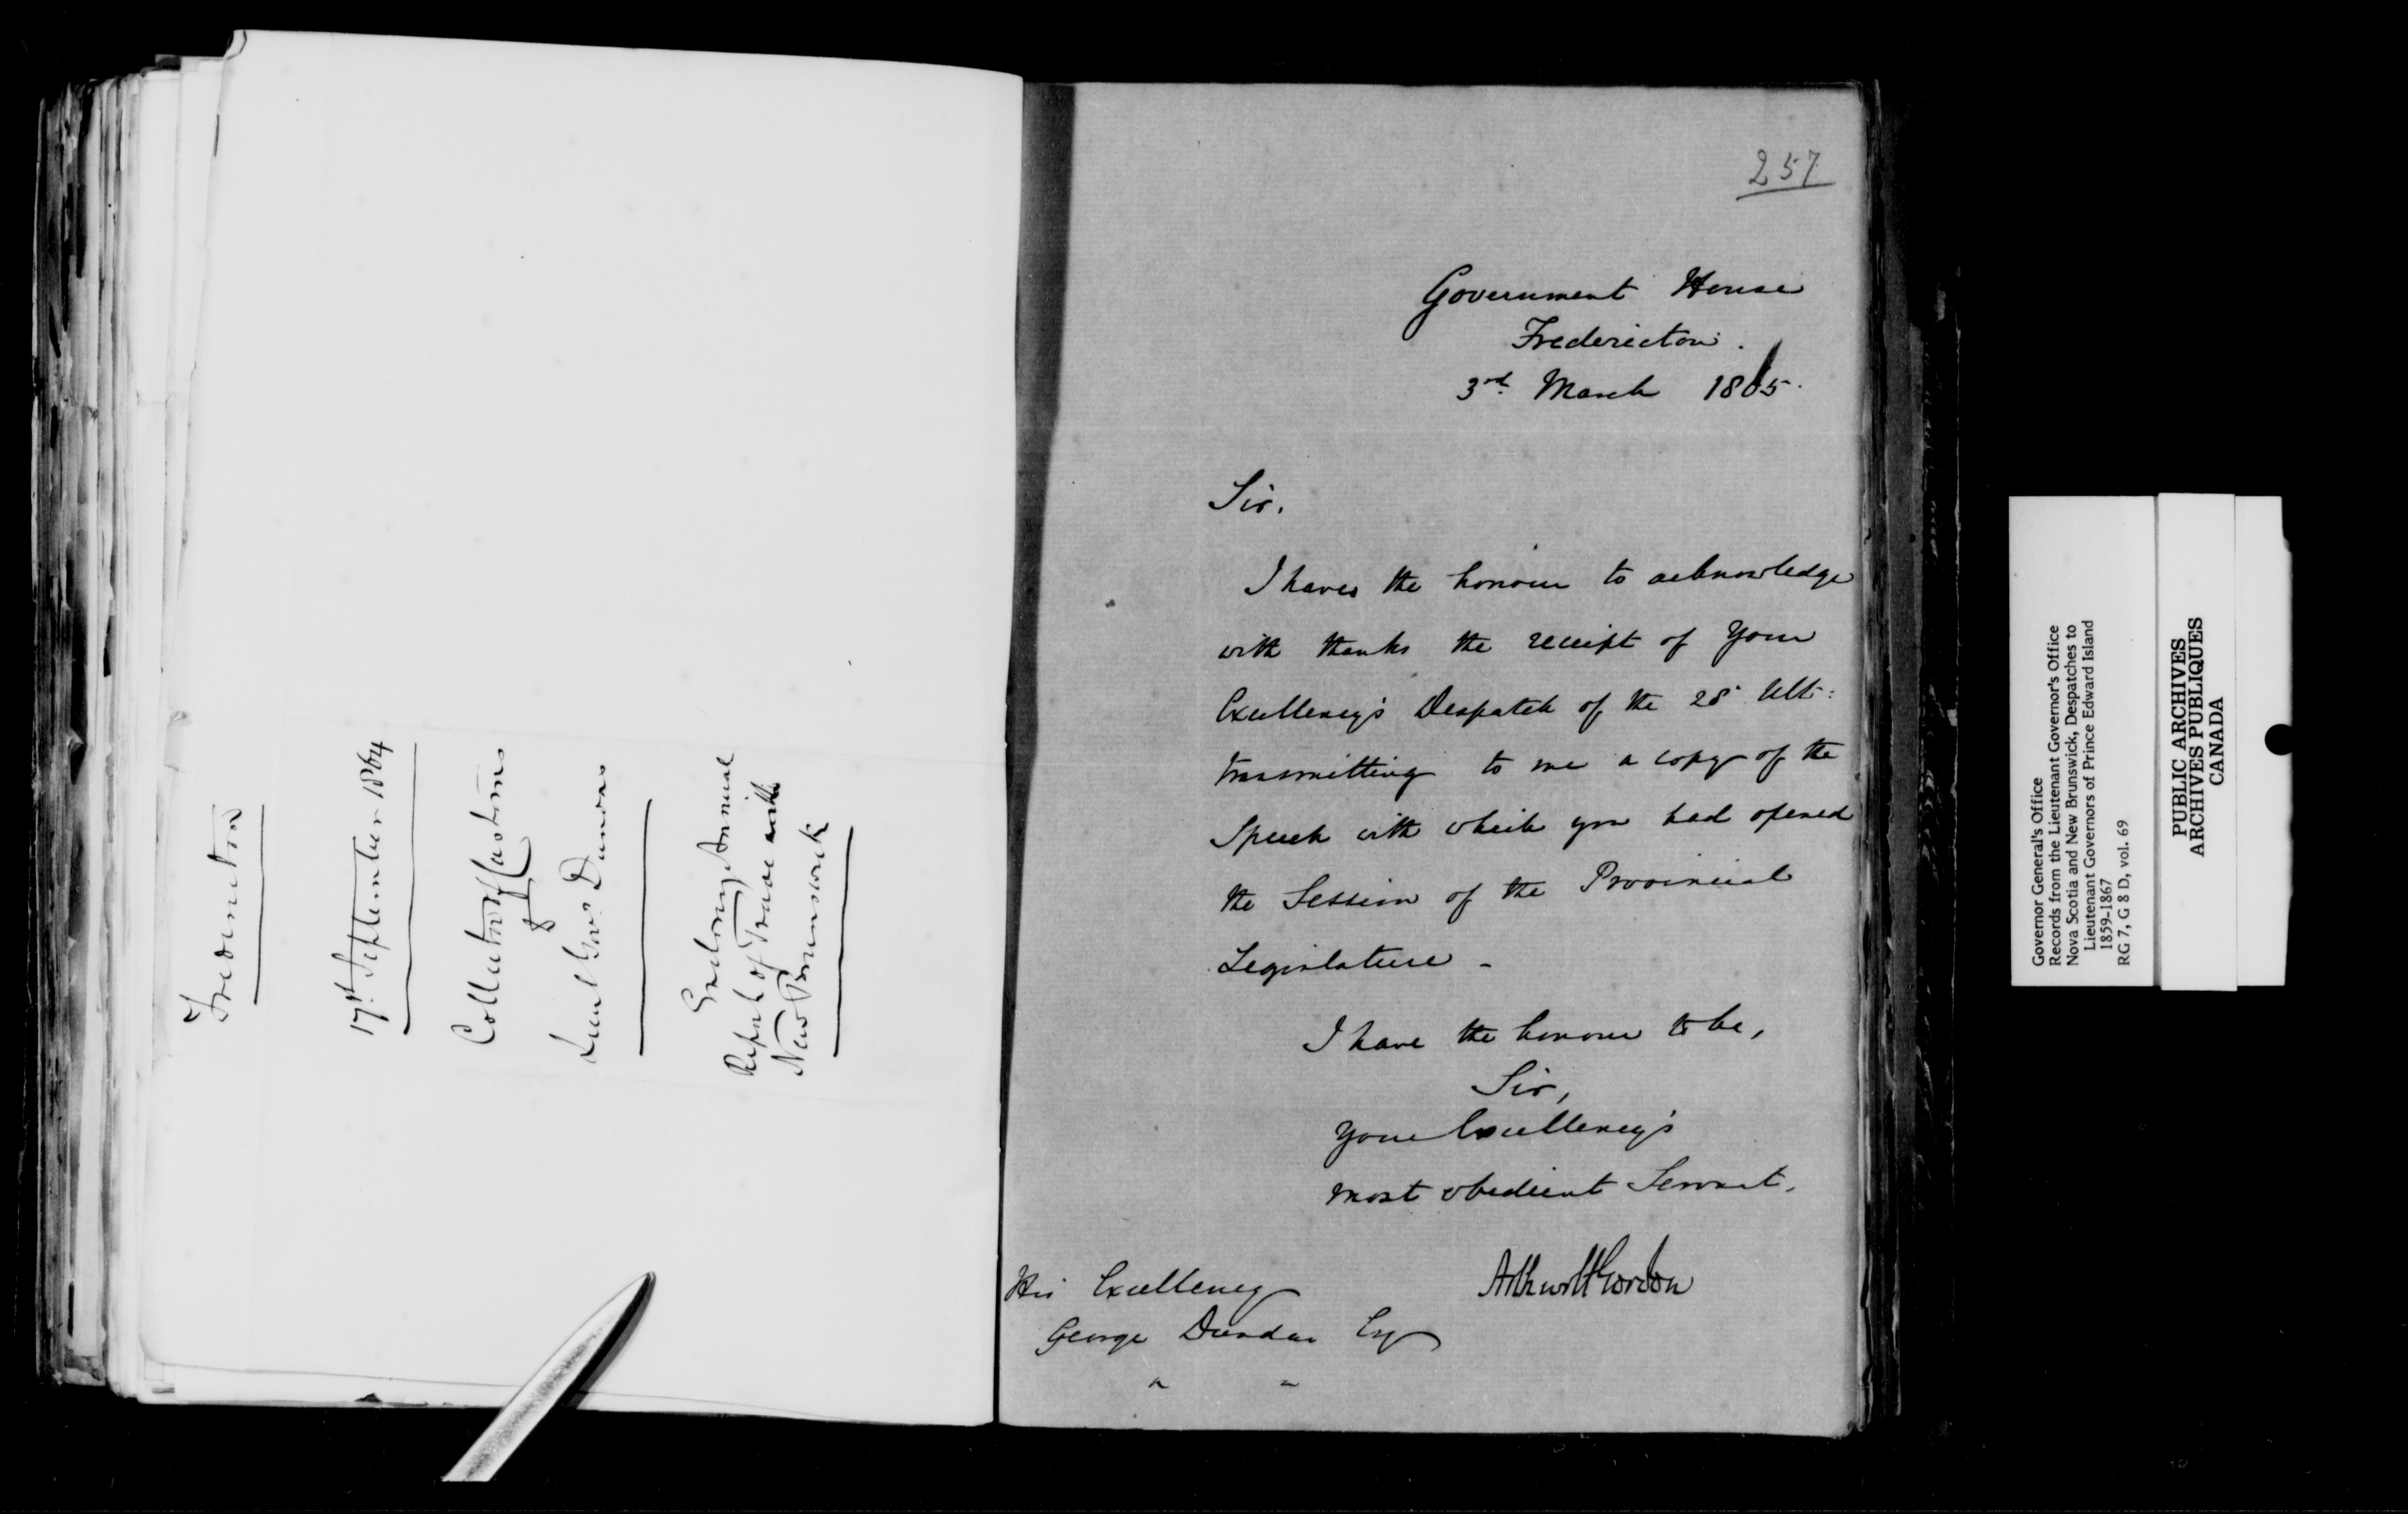 Fredericton
17th September 1864
Collector of Customs
to
Lieut Gov. Dundas
Enclosing Annual
Report of Trade with
New Brunswick
257
Government House
Fredericton.
3rd March 1865.
Sir,
I have the honour to acknowledge
with thanks the receipt of Your
Excellency's Despatch of the 28 Ult:
transmitting to me a copy of the
Speech with which you had opened
the Session of the Provincial
Legislature -
I have the honour to be,
Sir,
Your Excellency's
most obedient Servant,
Arthur H Gordon
His Excellency
George Dundas Esq
" "
Governor General's Office
Records from the Lieutenant Governor's Office
Nova Scotia and New Brunswick, Despatches to
Lieutenant Governors of Prince Edward Island
1859-1867
RG 7, G 8 D, vol. 69
PUBLIC ARCHIVES
ARCHIVES PUBLIQUES
CANADA